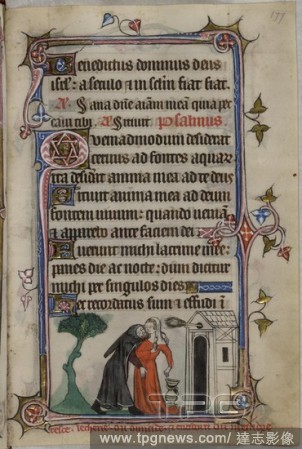 177
Benedictus dominus deus
isrl': a seculo et in sclm fiat fiat.
Sana dne aiam mea quia pec
caui tibi. Sicut Psalmus
Quemadmodum desiderat
ceruus ad fontes aquar
ita desidat anima mea ad te deus
Sitiuit anima mea ad deum
fontem uiuum: quando ueniā
et apparebo ante faciem dei
Fuerunt michi lacrime mee
panes die ac nocte: dum dicitur
michi per singulos dies
Hec recordatus sum et effudi ī
TPG
www.tpgnews.com / 達志影像